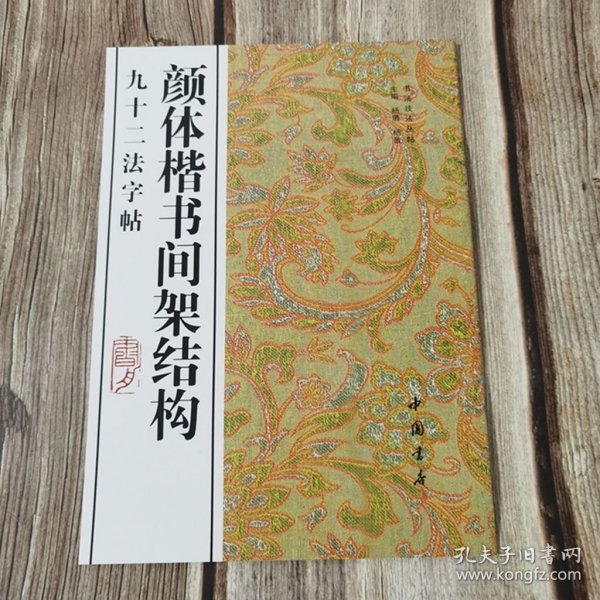 颜体楷书间架结构
九十二法字帖
书法技法丛帖
主编
中国书店
孔夫子旧书网
www.kongfz.com